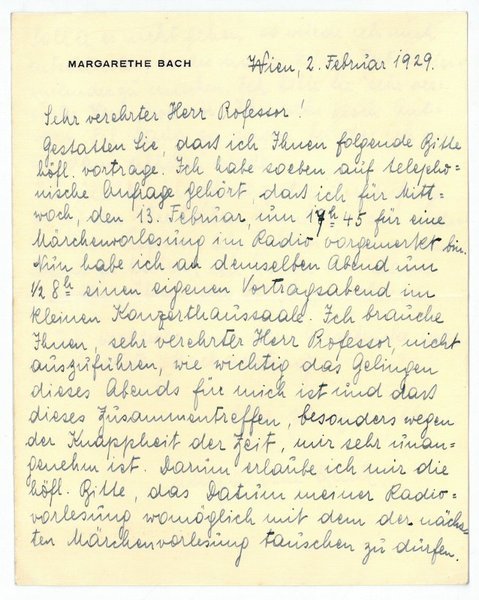 MARGARETHE BACH
Wien, 2. Februar 1929.
Sehr verehrter Herr Professor!
Gestatten Sie, dast ich Ihnen folgende Bitte
höfl. vortrage. Ich habe soeben auf telepho-
nische Anfrage gehört, dast ich für Mitt-
woch, den 13. Februar, um 17h 45 für eine
Märchenvorlesung im Radio vorgemerkt bin.
Nun habe ich an demselben Abend um
1/2 8h einen eigenen Vortragsabend im
kleinen Konzerthaussaale. Ich brauche
Ihnen, sehr verehrter Herr Professor, nicht
auszuführen, wie wichtig das Gelingen
dieses Abends für mich ist und dast
dieses Zusammentreffen, besonders wegen
der Knappheit der Zeit, mir sehr unan-
genehm ist. Darum erlaube ich mir die
höfl. Bitte, das Datum meiner Radio-
vorlesung womöglich mit dem der nächs-
ten Märchenvorlesung tauschen zu dürfen.